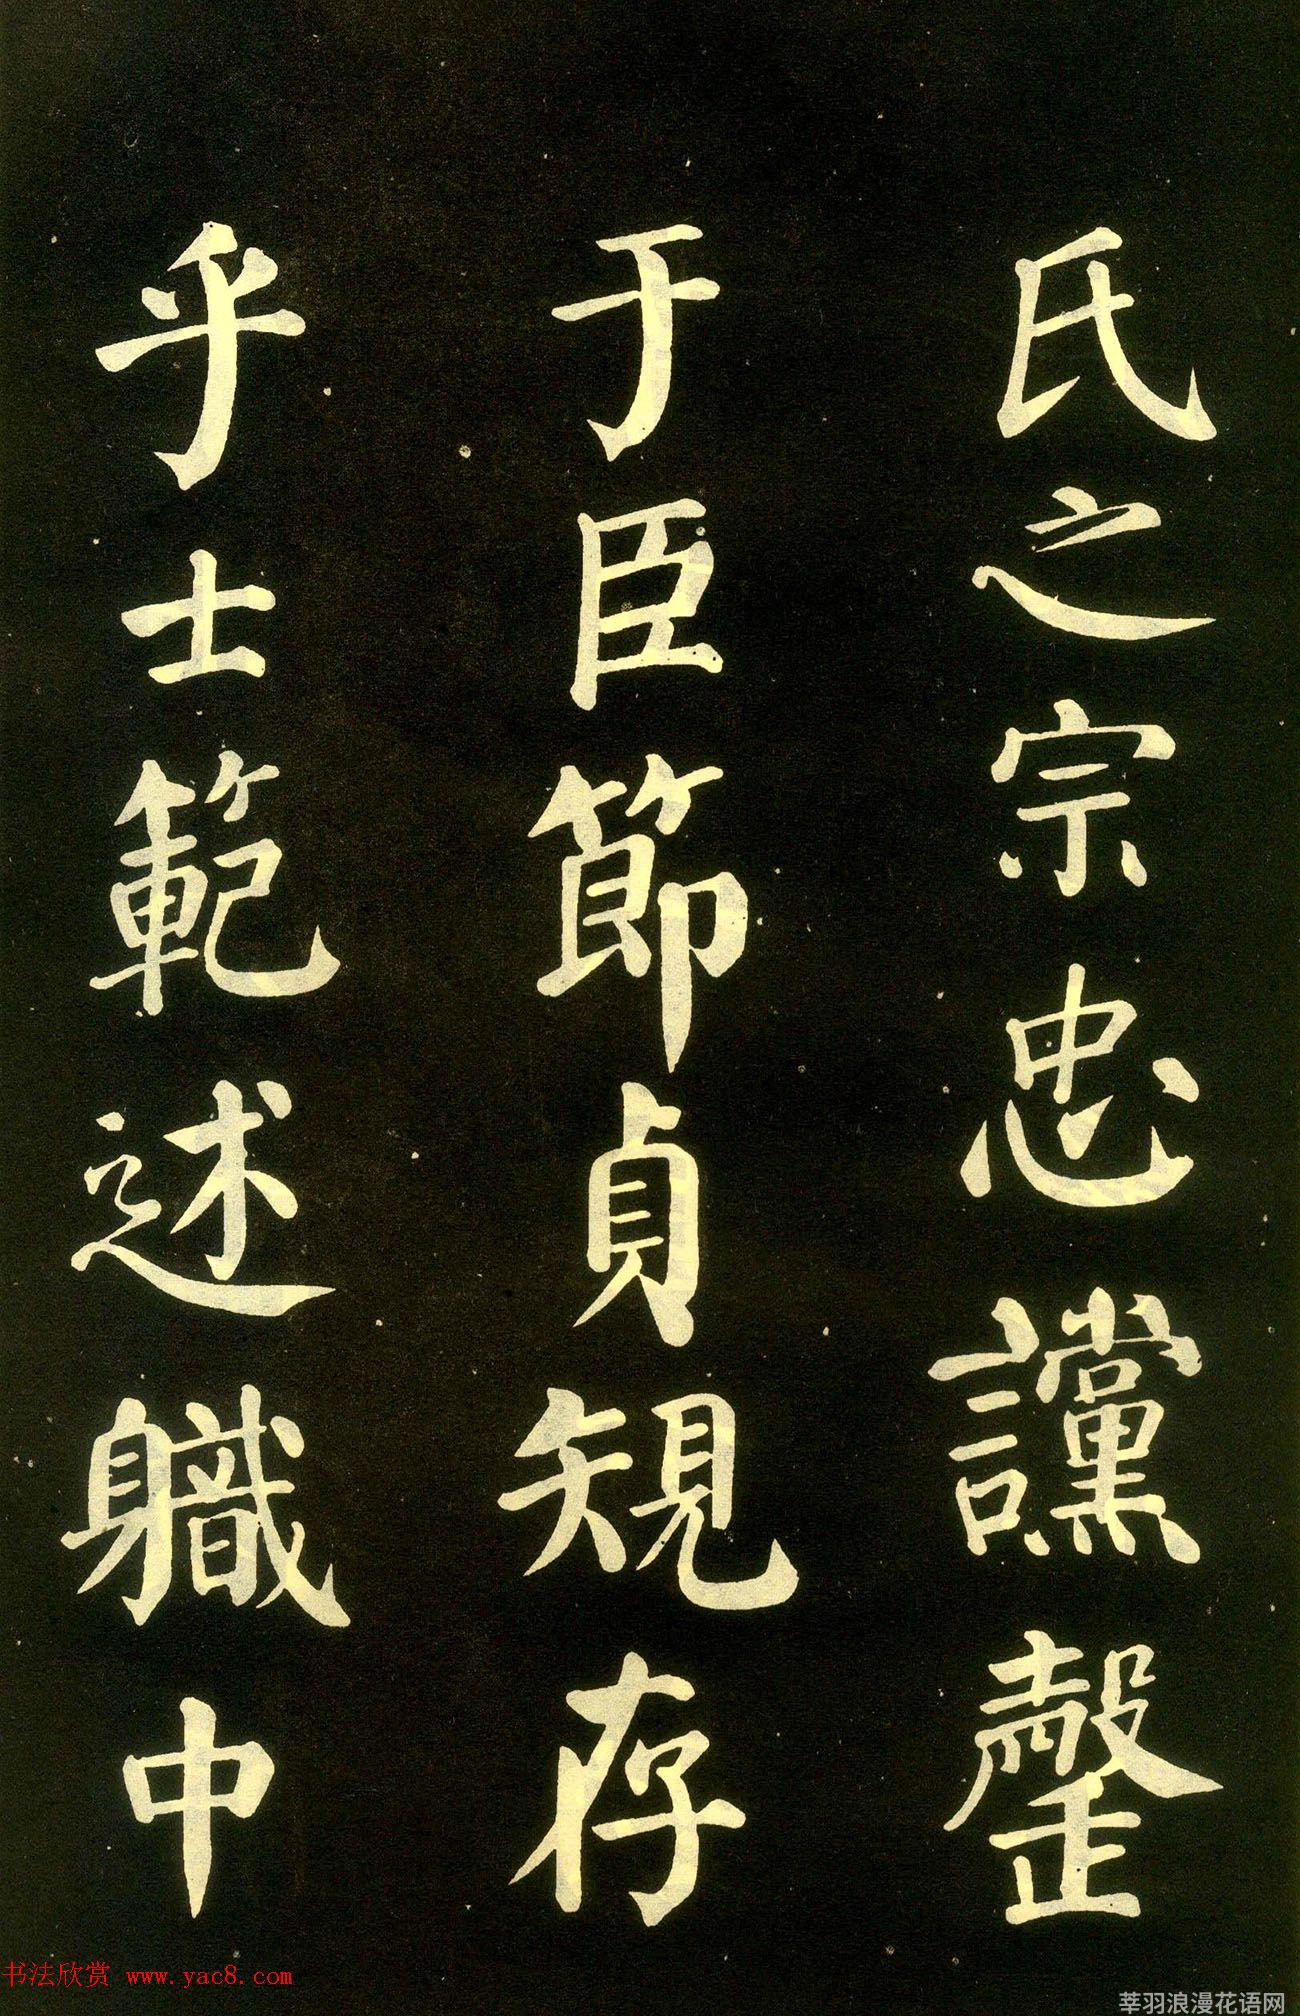 氏之宗忠讜罄
于臣節貞規存
乎士範述職中
书法欣赏 www.yac8.com
莘羽浪漫花语网